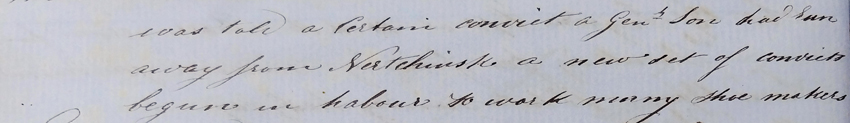 was told a Certain convict a Genls Son had run
away from Nertchinsk a new set of convicts
begun in habour to work many shoe makers